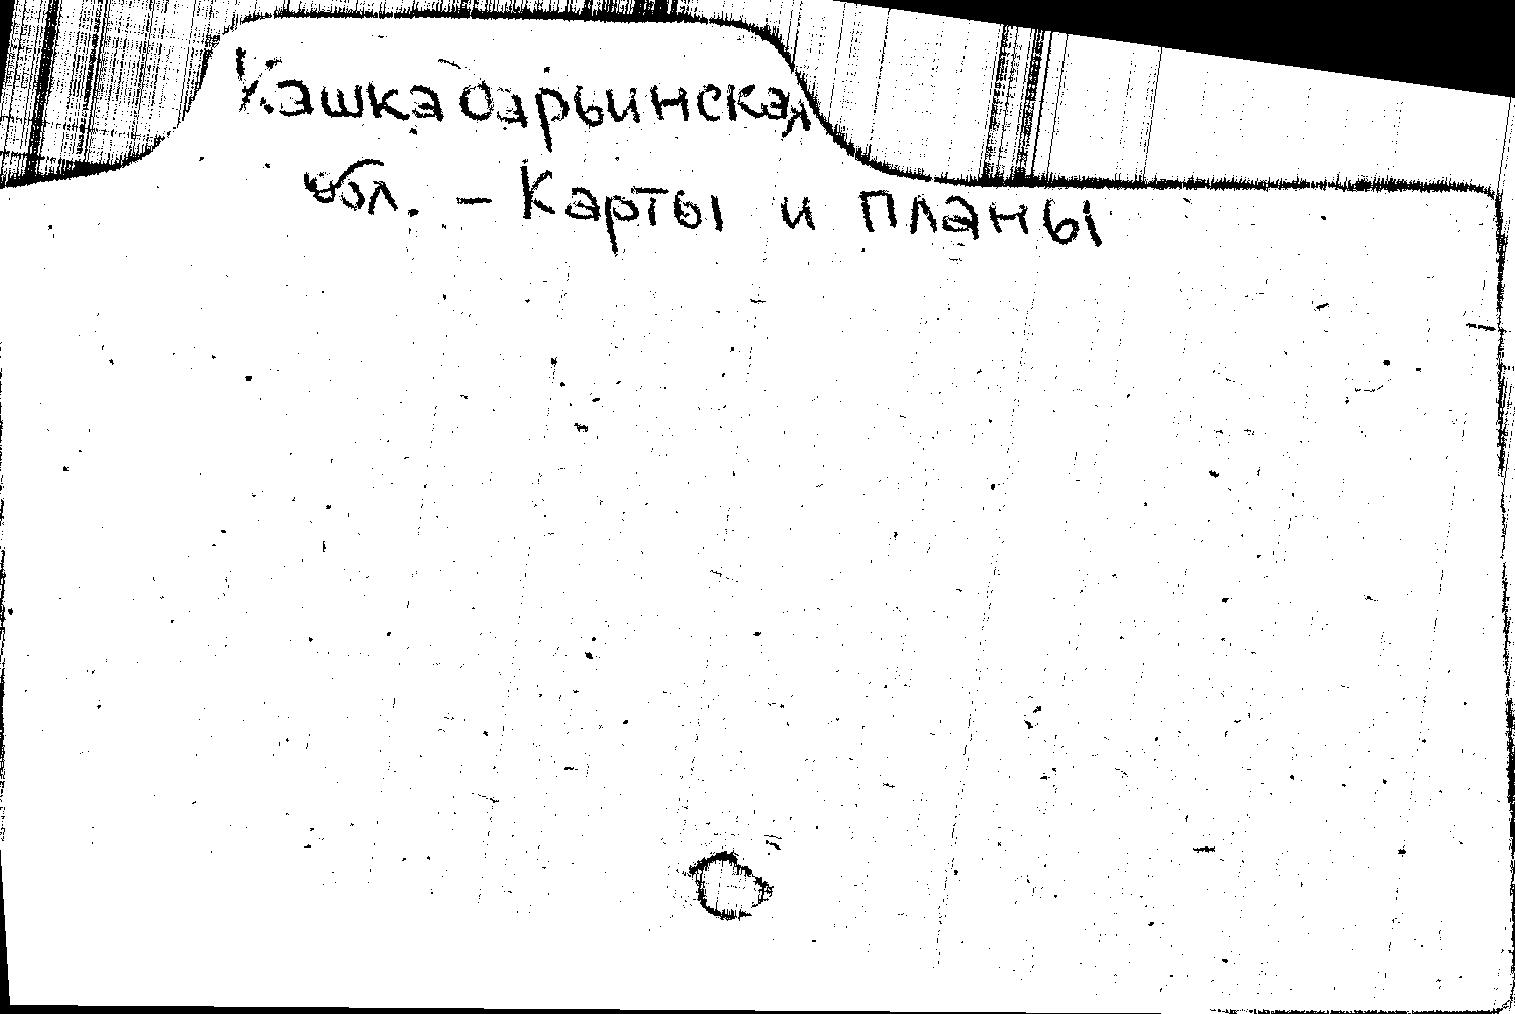 Кашкадарьинская
обл. - Карты и планы